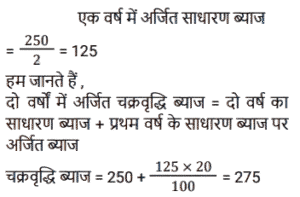 एक वर्ष में अर्जित साधारण ब्याज
= 250/2 = 125
हम जानते हैं ,
दो वर्षों में अर्जित चक्रवृद्धि ब्याज = दो वर्ष का
साधारण ब्याज + प्रथम वर्ष के साधारण ब्याज पर
अर्जित ब्याज
चक्रवृद्धि ब्याज = 250 + 125 × 20/100 = 275